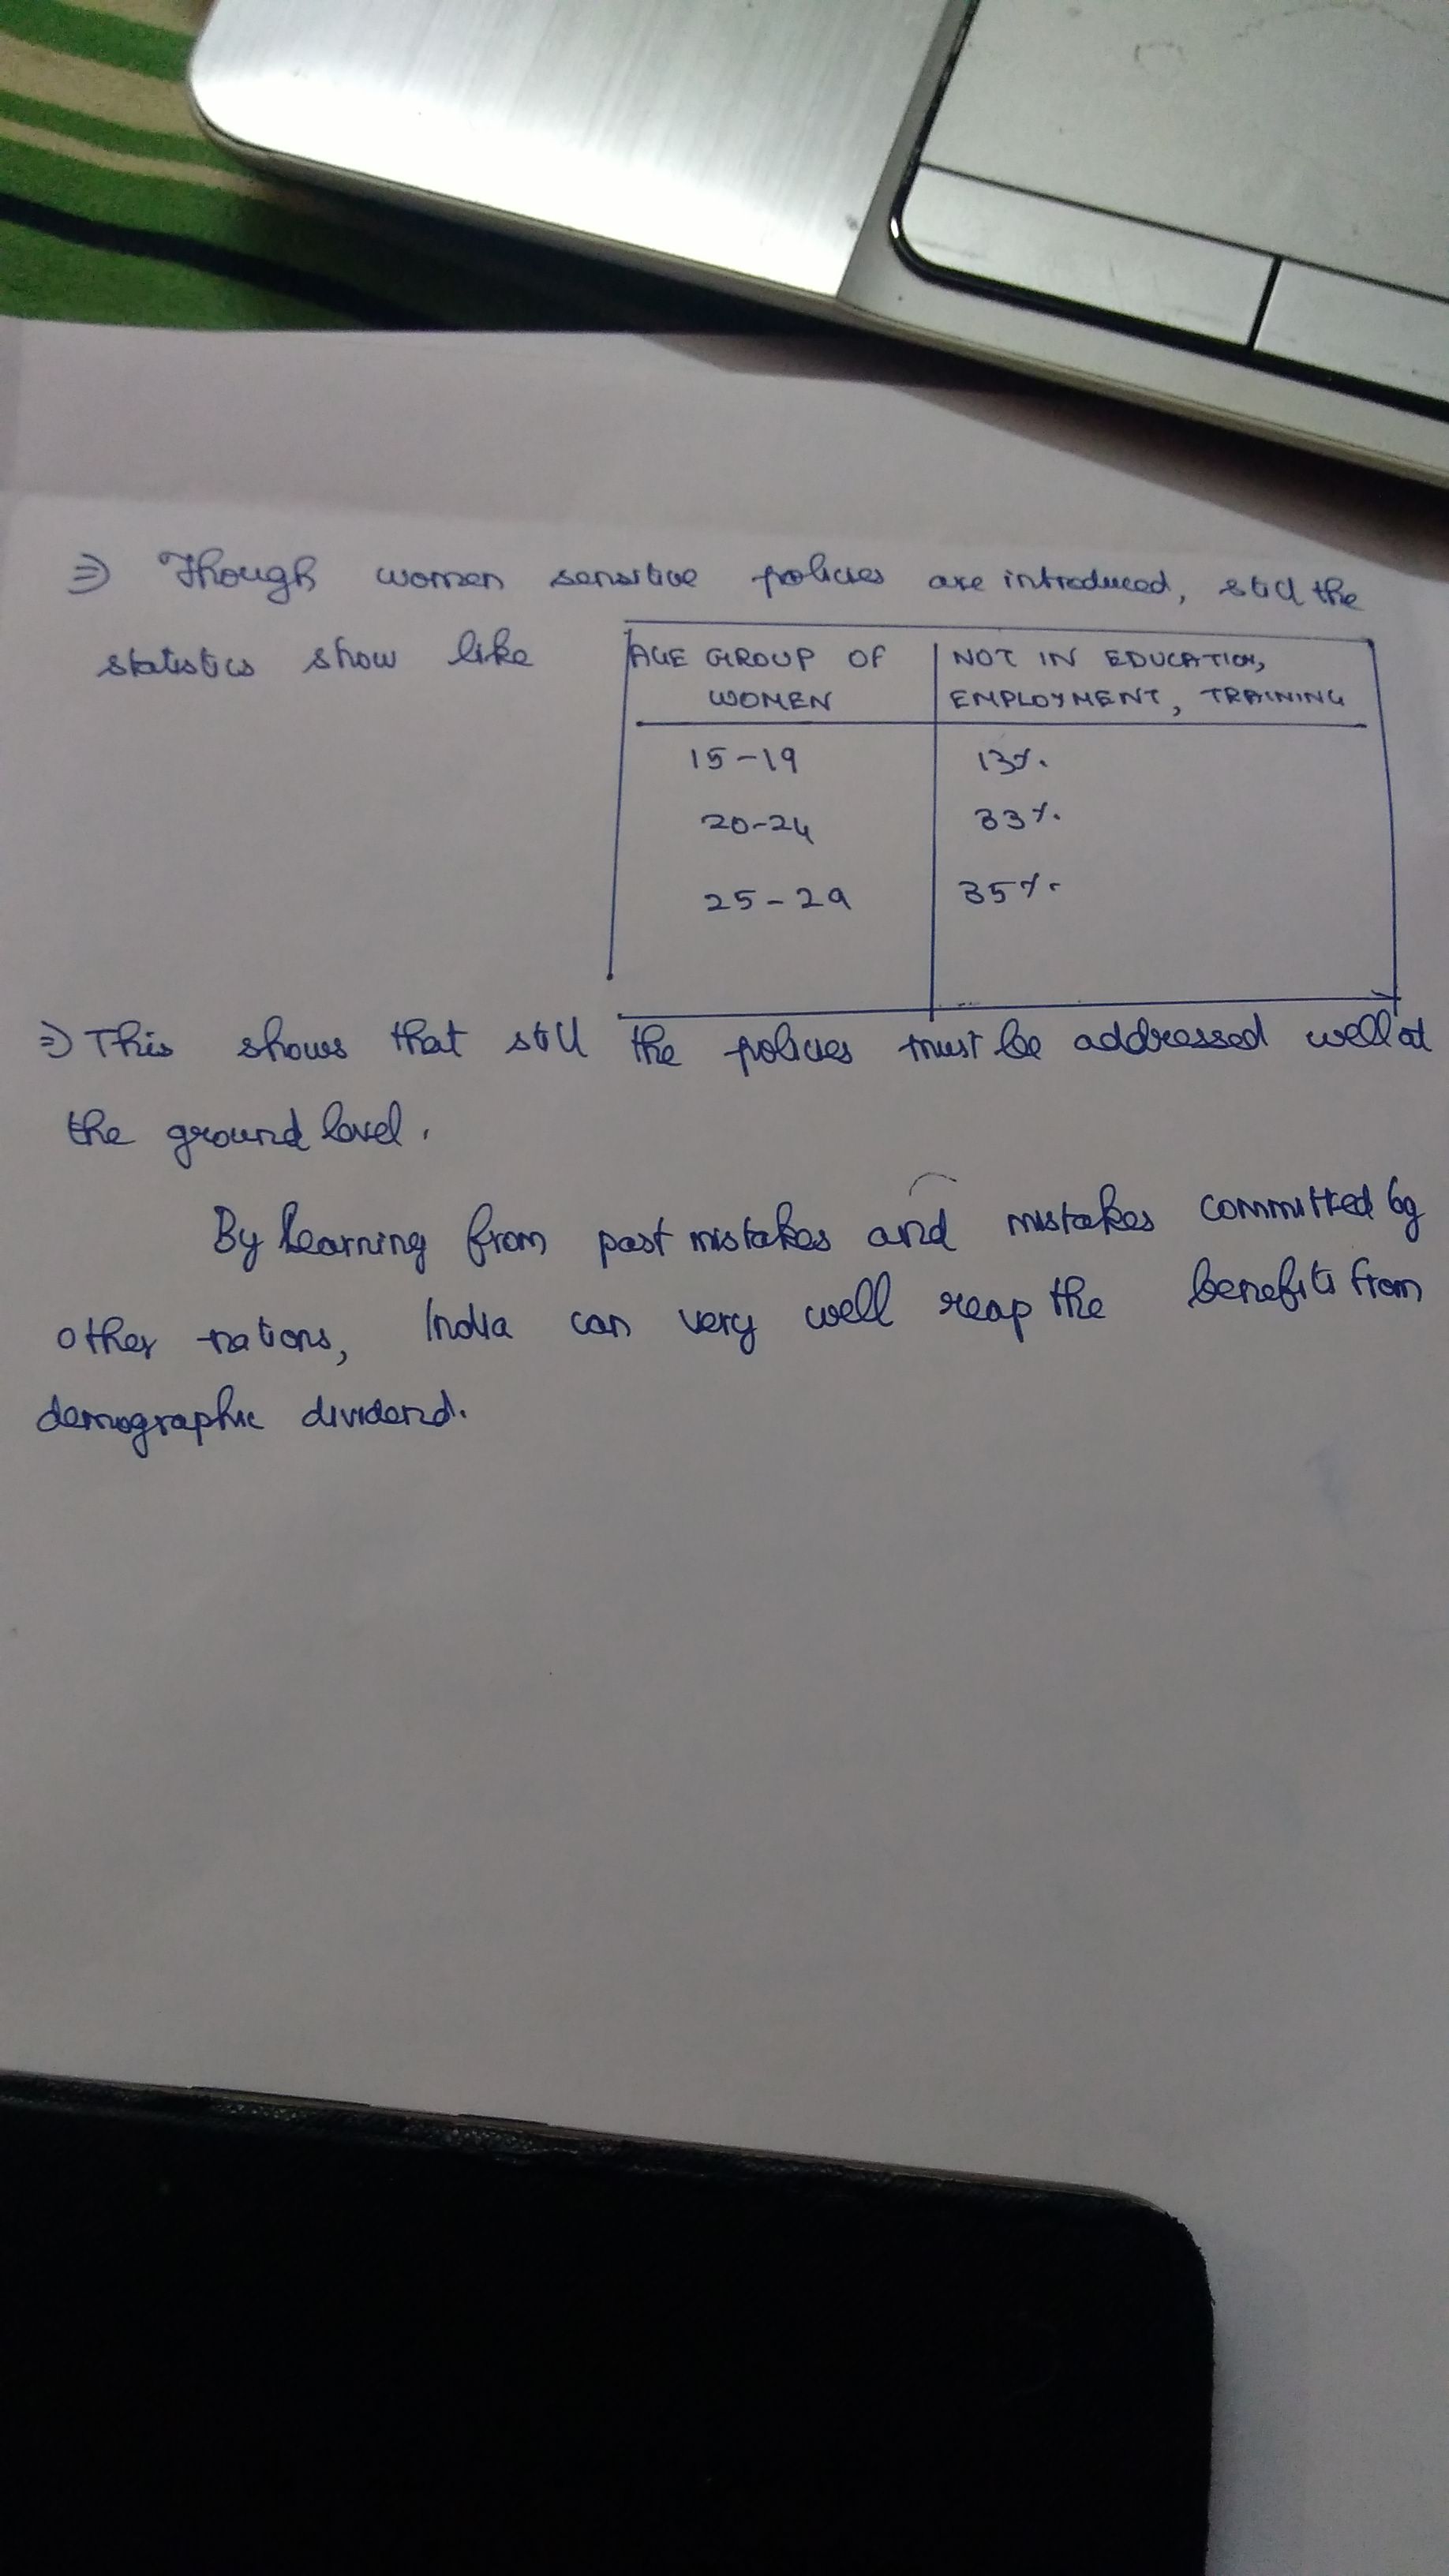 ⇒ Though women sensitive policies are introduced, still the
statistics show like
AGE GROUP OF WOMEN | NOT IN EDUCATION, EMPLOYMENT, TRAINING
15-19 | 13%
20-24 | 33%
25-29 | 35%
⇒ This shows that still the policies must be addressed well at
the ground level.
By learning from past mistakes and mistakes committed by
other nations, India can very well reap the benefits from
demographic dividend.